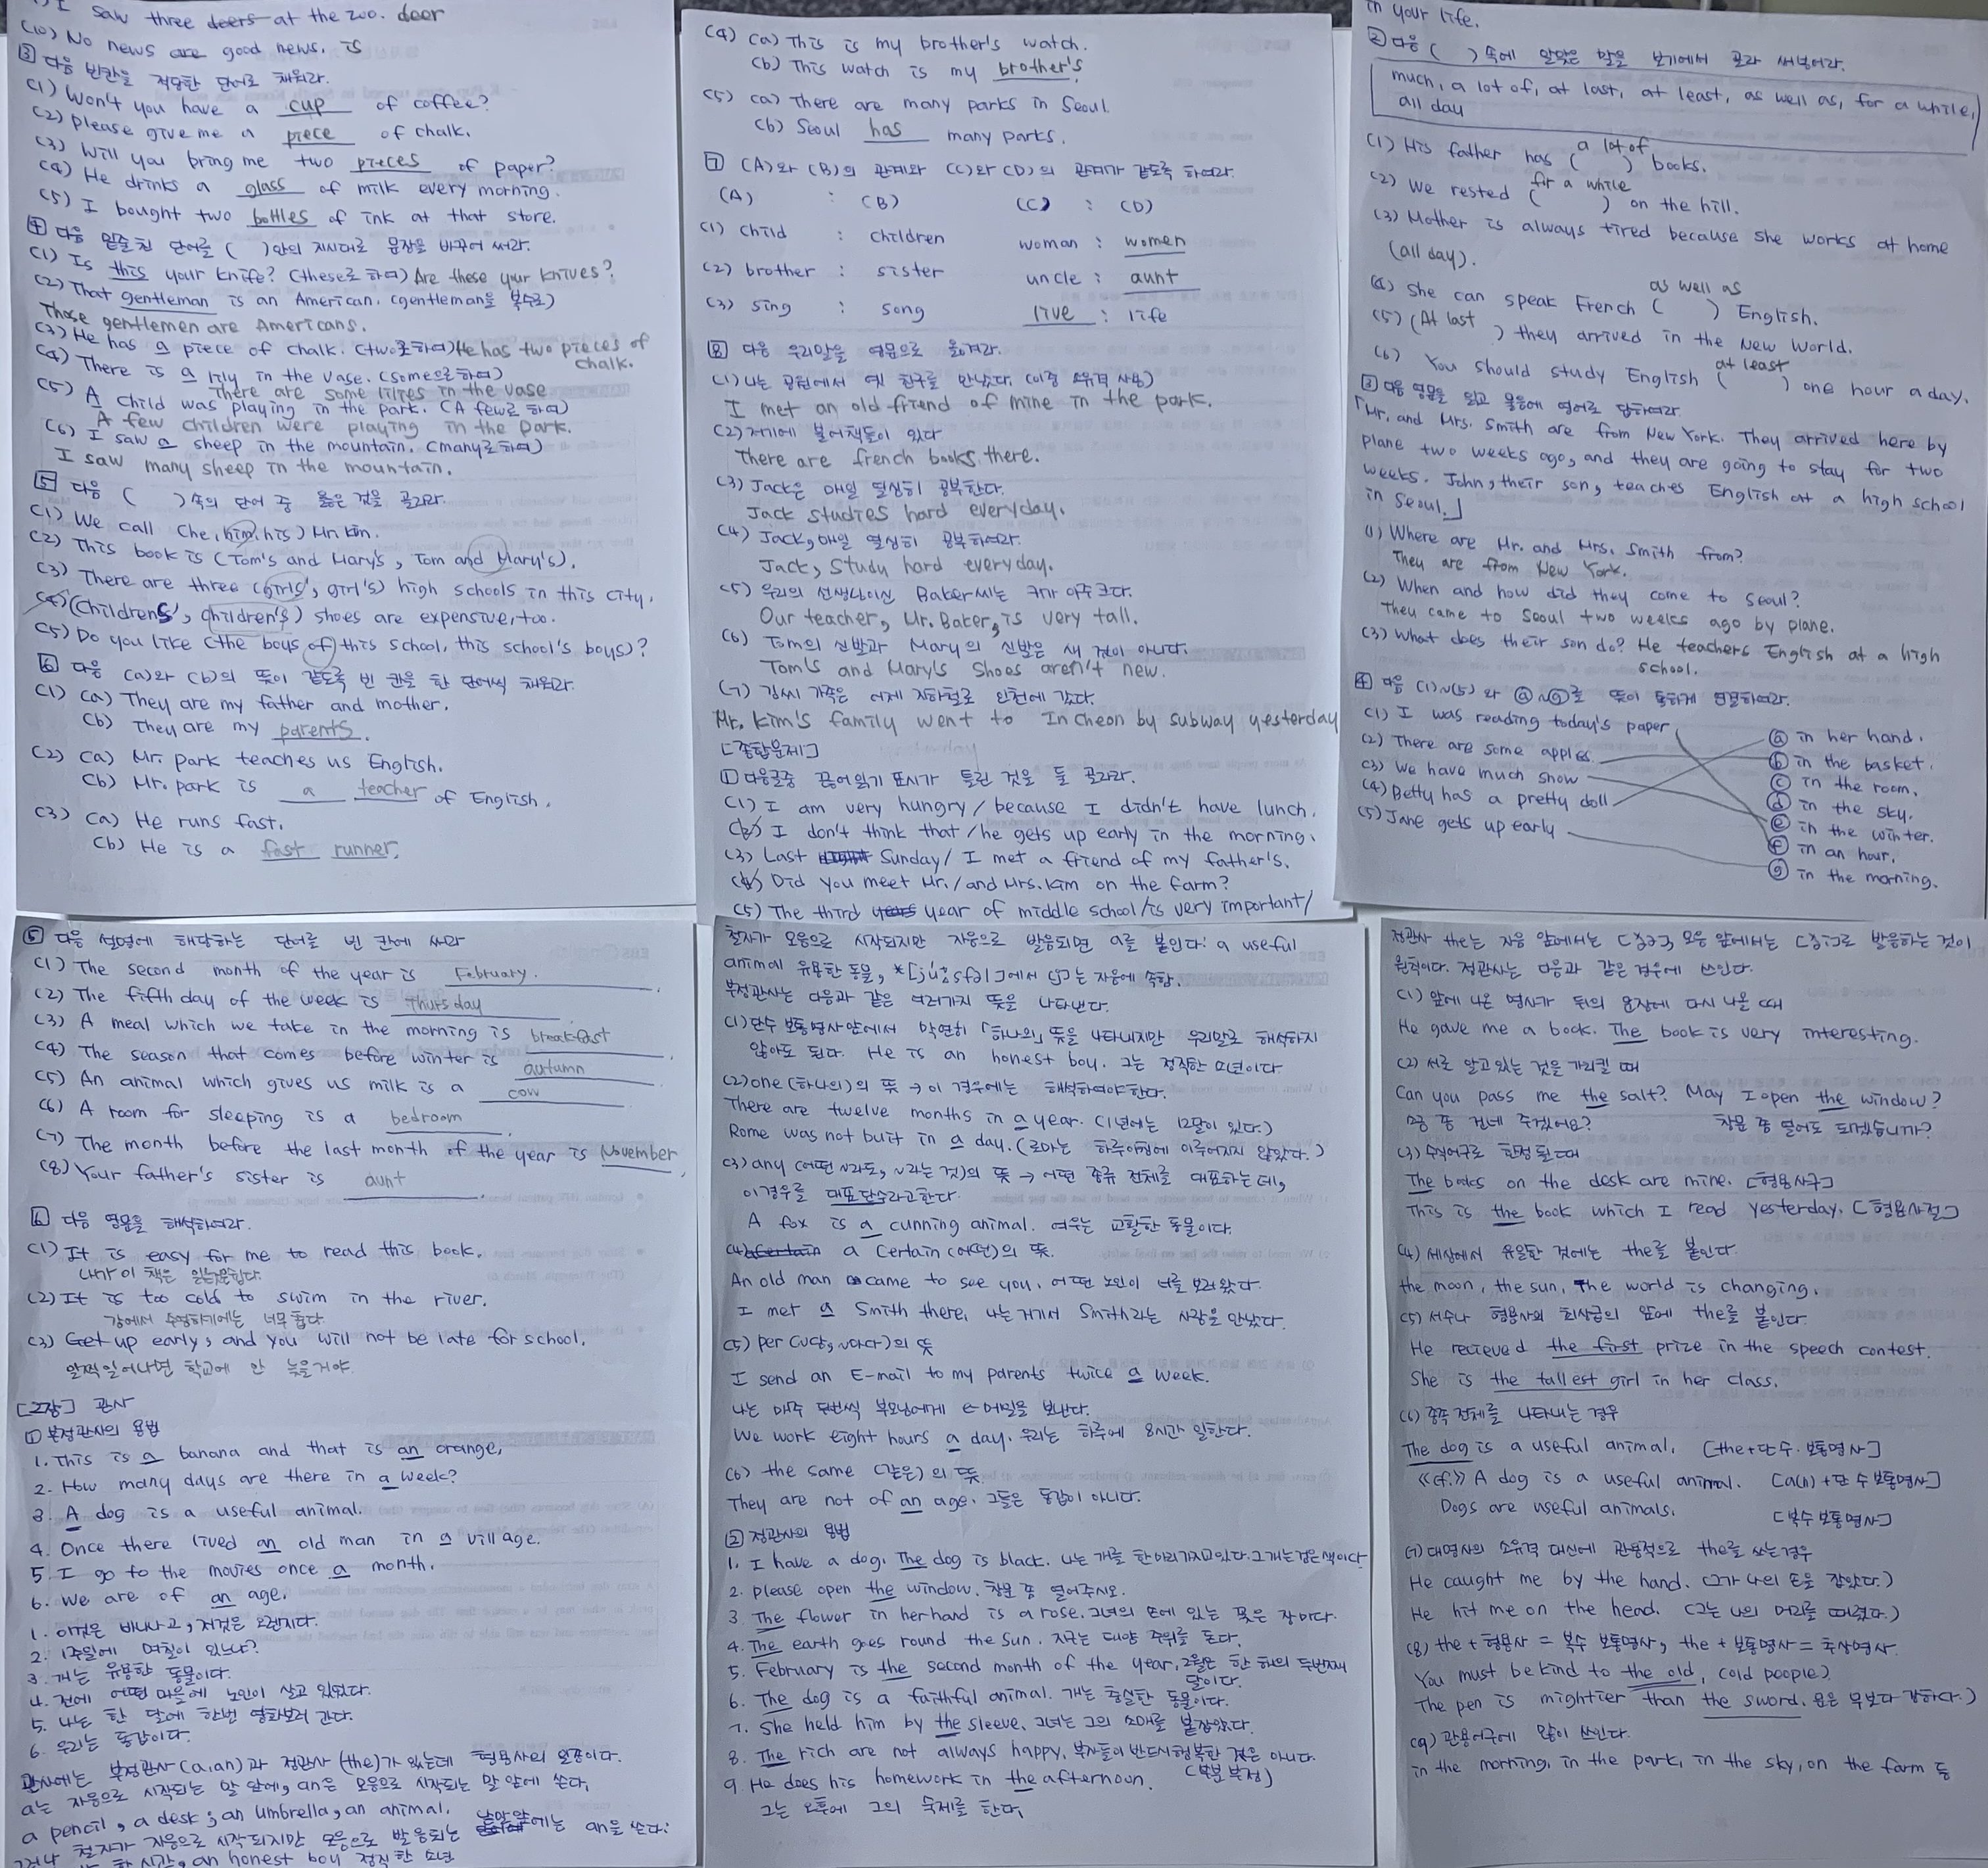 I saw three deers at the zoo. deer
(10) No news are good news. is
[3] 다음 빈칸을 적당한 단어로 채워라.
(1) Won't you have a cup of coffee?
(2) Please give me a piece of chalk.
(3) Will you bring me two pieces of paper?
(4) He drinks a glass of milk every morning.
(5) I bought two bottles of ink at that store.
[4] 다음 밑줄 친 단어를 ( )안의 지시대로 문장을 바꾸어 써라.
(1) Is this your knife? (these로 하여) Are these your knives?
(2) That gentleman is an American. (gentleman을 복수로)
Those gentlemen are Americans.
(3) He has a piece of chalk. (two로 하여) He has two pieces of chalk.
(4) There is a lily in the vase. (some으로 하여)
There are some lilies in the vase
(5) A child was playing in the park. (A few로 하여)
A few children were playing in the park.
(6) I saw a sheep in the mountain. (many로 하여)
I saw many sheep in the mountain.
[5] 다음 ( )속의 단어 중 옳은 것을 골라라.
(1) We call (he, him, his) Mr. Kim.
(2) This book is (Tom's and Mary's, Tom and Mary's).
(3) There are three (girls', girl's) high schools in this city.
(4) (Childrens', children's) shoes are expensive, too.
(5) Do you like (the boys of this school, this school's boys)?
[6] 다음 (a)와 (b)의 뜻이 같도록 빈 칸을 한 단어씩 채워라.
(1) (a) They are my father and mother.
(b) They are my parents.
(2) (a) Mr. park teaches us English.
(b) Mr. park is a teacher of English.
(3) (a) He runs fast.
(b) He is a fast runner.
(4) (a) This is my brother's watch.
(b) This watch is my brother's.
(5) (a) There are many parks in Seoul.
(b) Seoul has many parks.
[7] (A)와 (B)의 관계와 (C)와 (D)의 관계가 같도록 하여라.
(A) : (B) (C) : (D)
(1) child : children woman : women
(2) brother : sister uncle : aunt
(3) sing : song live : life
[8] 다음 우리말을 영문으로 옮겨라.
(1) 나는 공원에서 옛 친구를 만났다. (이중 소유격 사용)
I met an old friend of mine in the park.
(2) 저기에 불어책들이 있다
There are french books there.
(3) Jack은 매일 열심히 공부한다.
Jack studies hard everyday.
(4) Jack, 매일 열심히 공부하여라.
Jack, study hard everyday.
(5) 우리의 선생님이신 Baker씨는 키가 아주 크다.
Our teacher, Mr. Baker, is very tall.
(6) Tom의 신발과 Mary의 신발은 새 것이 아니다.
Tom's and Mary's Shoes aren't new.
(7) 김씨 가족은 어제 지하철로 인천에 갔다.
Mr. Kim's family went to Incheon by subway yesterday
[종합문제]
[1] 다음글중 끊어읽기 표시가 틀린 것을 둘 골라라.
(1) I am very hungry / because I didn't have lunch.
(2) I don't think that / he gets up early in the morning.
(3) Last Sunday / I met a friend of my father's.
(4) Did you meet Mr. / and Mrs. Kim on the farm?
(5) The third years year of middle school / is very important /
in your life.
[2] 다음 ( ) 속에 알맞은 말을 보기에서 골라 써넣어라.
much, a lot of, at last, at least, as well as, for a while,
all day
(1) His father has (a lot of) books.
(2) We rested (for a while) on the hill.
(3) Mother is always tired because she works at home
(all day).
(4) She can speak French (as well as) English.
(5) (At last) they arrived in the New World.
(6) You should study English (at least) one hour a day.
[3] 다음 영문을 읽고 물음에 영어로 답하여라.
「Mr. and Mrs. Smith are from New York. They arrived here by
plane two weeks ago, and they are going to stay for two
weeks. John, their son, teaches English at a high school
in Seoul.」
(1) Where are Mr. and Mrs. Smith from?
They are from New York.
(2) When and how did they come to Seoul?
They came to Seoul two weeks ago by plane.
(3) What does their son do? He teachers English at a high
school.
[4] 다음 (1)~(5) 와 ⓐ~ⓖ를 뜻이 통하게 연결하여라.
(1) I was reading today's paper
(2) There are some apples
(3) We have much snow
(4) Betty has a pretty doll
(5) Jane gets up early
ⓐ in her hand.
ⓑ in the basket.
ⓒ in the room.
ⓓ in the sky.
ⓔ in the winter.
ⓕ in an hour.
ⓖ in the morning.
⑤ 다음 설명에 해당하는 단어를 빈 칸에 써라
(1) The second month of the year is February.
(2) The fifth day of the week is Thursday
(3) A meal which we take in the morning is breakfast.
(4) The season that comes before winter is autumn.
(5) An animal which gives us milk is a cow.
(6) A room for sleeping is a bedroom.
(7) The month before the last month of the year is November.
(8) Your father's sister is aunt.
[6] 다음 영문을 해석하여라.
(1) It is easy for me to read this book.
내가 이 책은 읽는 쉽다.
(2) It is too cold to swim in the river.
강에서 수영하기에는 너무 춥다
(3) Get up early, and you will not be late for school.
일찍 일어나면 학교에 안 늦을거야.
[2장] 관사
① 부정관사의 용법
1. This is a banana and that is an orange,
2. How many days are there in a week?
3. A dog is a useful animal.
4. Once there lived an old man in a village.
5. I go to the movies once a month.
6. We are of an age.
1. 이것은 바나나고, 저것은 오렌지다.
2. 1주일에 며칠이 있느냐?
3. 개는 유용한 동물이다.
4. 전에 어떤 마을에 노인이 살고 있었다.
5. 나는 한 달에 한번 영화보러 간다.
6. 우리는 동갑이다.
관사에는 부정관사 (a, an)과 정관사 (the)가 있는데 형용사의 일종이다.
a는 자음으로 시작되는 말 앞에, an은 모음으로 시작되는 말 앞에 쓴다.
a pencil, a desk; an umbrella, an animal.
철자가 자음으로 시작되지만 모음으로 발음되는 낱말앞에는 an을 쓴다:
한 시간, an honest boy 정직한 소년
철자가 모음으로 시작되지만 자음으로 발음되면 a를 붙인다: a useful
animal 유용한 동물, *[júːsfəl]에서 [j]는 자음에 속함.
부정관사는 다음과 같은 여러가지 뜻을 나타낸다.
(1) 단수 보통명사앞에서 막연히 「하나의」 뜻을 나타내지만 우리말로 해석하지
않아도 된다. He is an honest boy. 그는 정직한 소년이다
(2) one (하나의)의 뜻 → 이 경우에는 해석하여야한다.
There are twelve months in a year. (1년에는 12달이 있다.)
Rome was not built in a day. (로마는 하루아침에 이루어지지 않았다.)
(3) any (어떤 ~라도, ~라는 것)의 뜻 → 어떤 종류 전체를 대표하는데,
이경우를 대표단수라고한다.
A fox is a cunning animal. 여우는 교활한 동물이다.
(4) a certain a Certain (어떤)의 뜻.
An old man came to see you. 어떤 노인이 너를 보러왔다.
I met a Smith there, 나는 거기서 Smith라는 사람을 만났다.
(5) per (~당, ~마다)의 뜻
I send an E-mail to my parents twice a week.
나는 매주 두번씩 부모님에게 e-메일을 보낸다.
We work eight hours a day. 우리는 하루에 8시간 일한다.
(6) the same (같은) 의 뜻.
They are not of an age. 그들은 동갑이 아니다.
② 정관사의 용법
1. I have a dog. The dog is black. 나는 개를 한마리가지고있다. 그개는검은색이다
2. Please open the window. 창문 좀 열어주시오.
3. The flower in her hand is a rose. 그녀의 손에 있는 꽃은 장미다.
4. The earth goes round the sun. 지구는 태양 주위를 돈다.
5. February is the second month of the year. 2월은 한 해의 두번째
달이다.
6. The dog is a faithful animal. 개는 충실한 동물이다.
7. She held him by the sleeve. 그녀는 그의 소매를 붙잡았다.
8. The rich are not always happy. 부자들이 반드시행복한 것은 아니다.
(부분 부정)
9 He does his homework in the afternoon.
그는 오후에 그의 숙제를 한다.
정관사 the는 자음 앞에서는 [ðə], 모음 앞에서는 [ði]로 발음하는 것이
원칙이다. 정관사는 다음과 같은 경우에 쓰인다.
(1) 앞에 나온 명사가 뒤의 문장에 다시 나올 때
He gave me a book. The book is very interesting.
(2) 서로 알고 있는 것을 가리킬 때
Can you pass me the salt? May I open the window?
소금 좀 건네 주겠어요? 창문 좀 열어도 되겠습니까?
(3) 수식어구로 한정될때
The books on the desk are mine. [형용사구]
This is the book which I read yesterday. [형용사절]
(4) 세상에서 유일한 것에는 the를 붙인다.
the moon, the sun, The world is changing.
(5) 서수나 형용사의 최상급의 앞에 the를 붙인다.
He recieved the first prize in the speech contest.
She is the tallest girl in her class.
(6) 종족 전체를 나타내는 경우
The dog is a useful animal. [the+단수 보통명사]
《cf.》 A dog is a useful animal. [a(n)+단수보통명사]
Dogs are useful animals. [복수 보통명사]
(7) 대명사의 소유격 대신에 관용적으로 the를 쓰는경우
He caught me by the hand. (그가 나의 손을 잡았다.)
He hit me on the head. (그는 나의 머리를 때렸다.)
(8) the + 형용사 = 복수 보통명사, the + 보통명사 = 추상명사.
You must be kind to the old, (old people).
The pen is mightier than the sword. (문은 무보다 강하다.)
(9) 관용어구에 많이 쓰인다.
in the morning, in the park, in the sky, on the farm 등